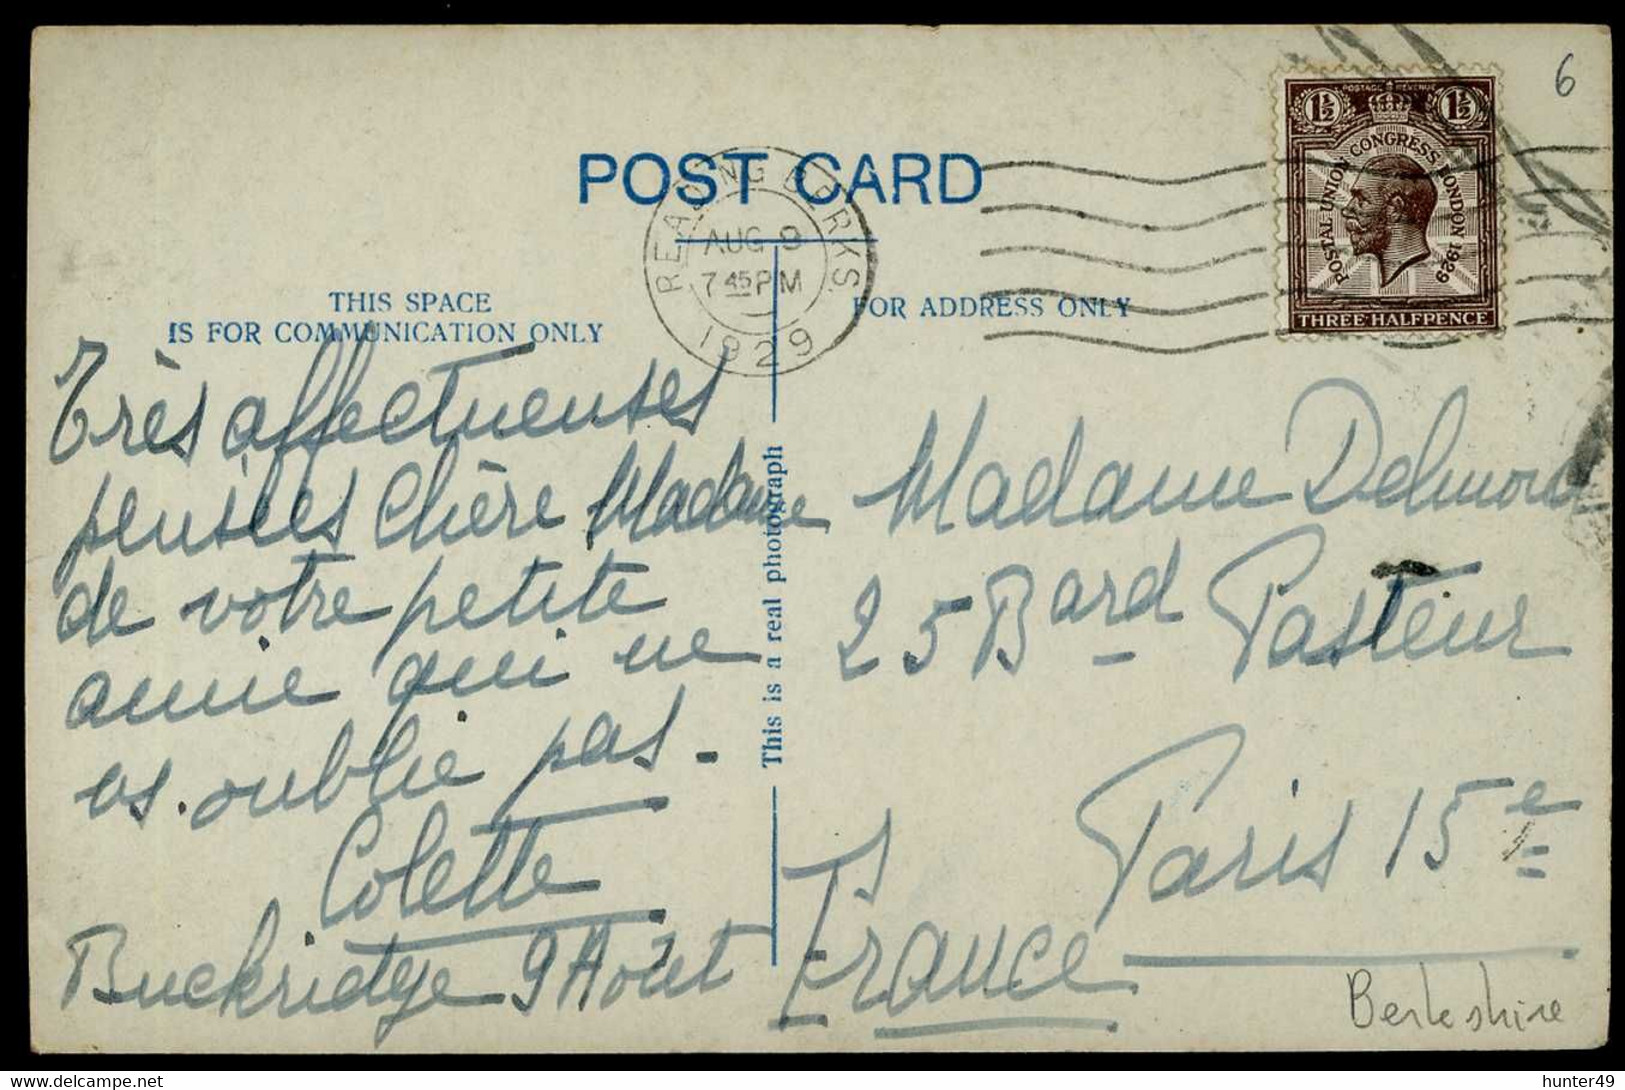 6
POSTAGE REVENUE
1½ 1½
POSTAL UNION CONGRESS LONDON 1929
THREE HALFPENCE
POST CARD
READING BERKS.
AUG 9
7 45 PM
1929
THIS SPACE
IS FOR COMMUNICATION ONLY
FOR ADDRESS ONLY
Très affectueuses
pensées Chère Madame
de votre petite
amie qui ne
vs. oublie pas.
Colette
Buckridge 9 Août
This is a real photograph
Madame
25 Bard Pasteur
Paris 15e
France
Berkshire
hunter49